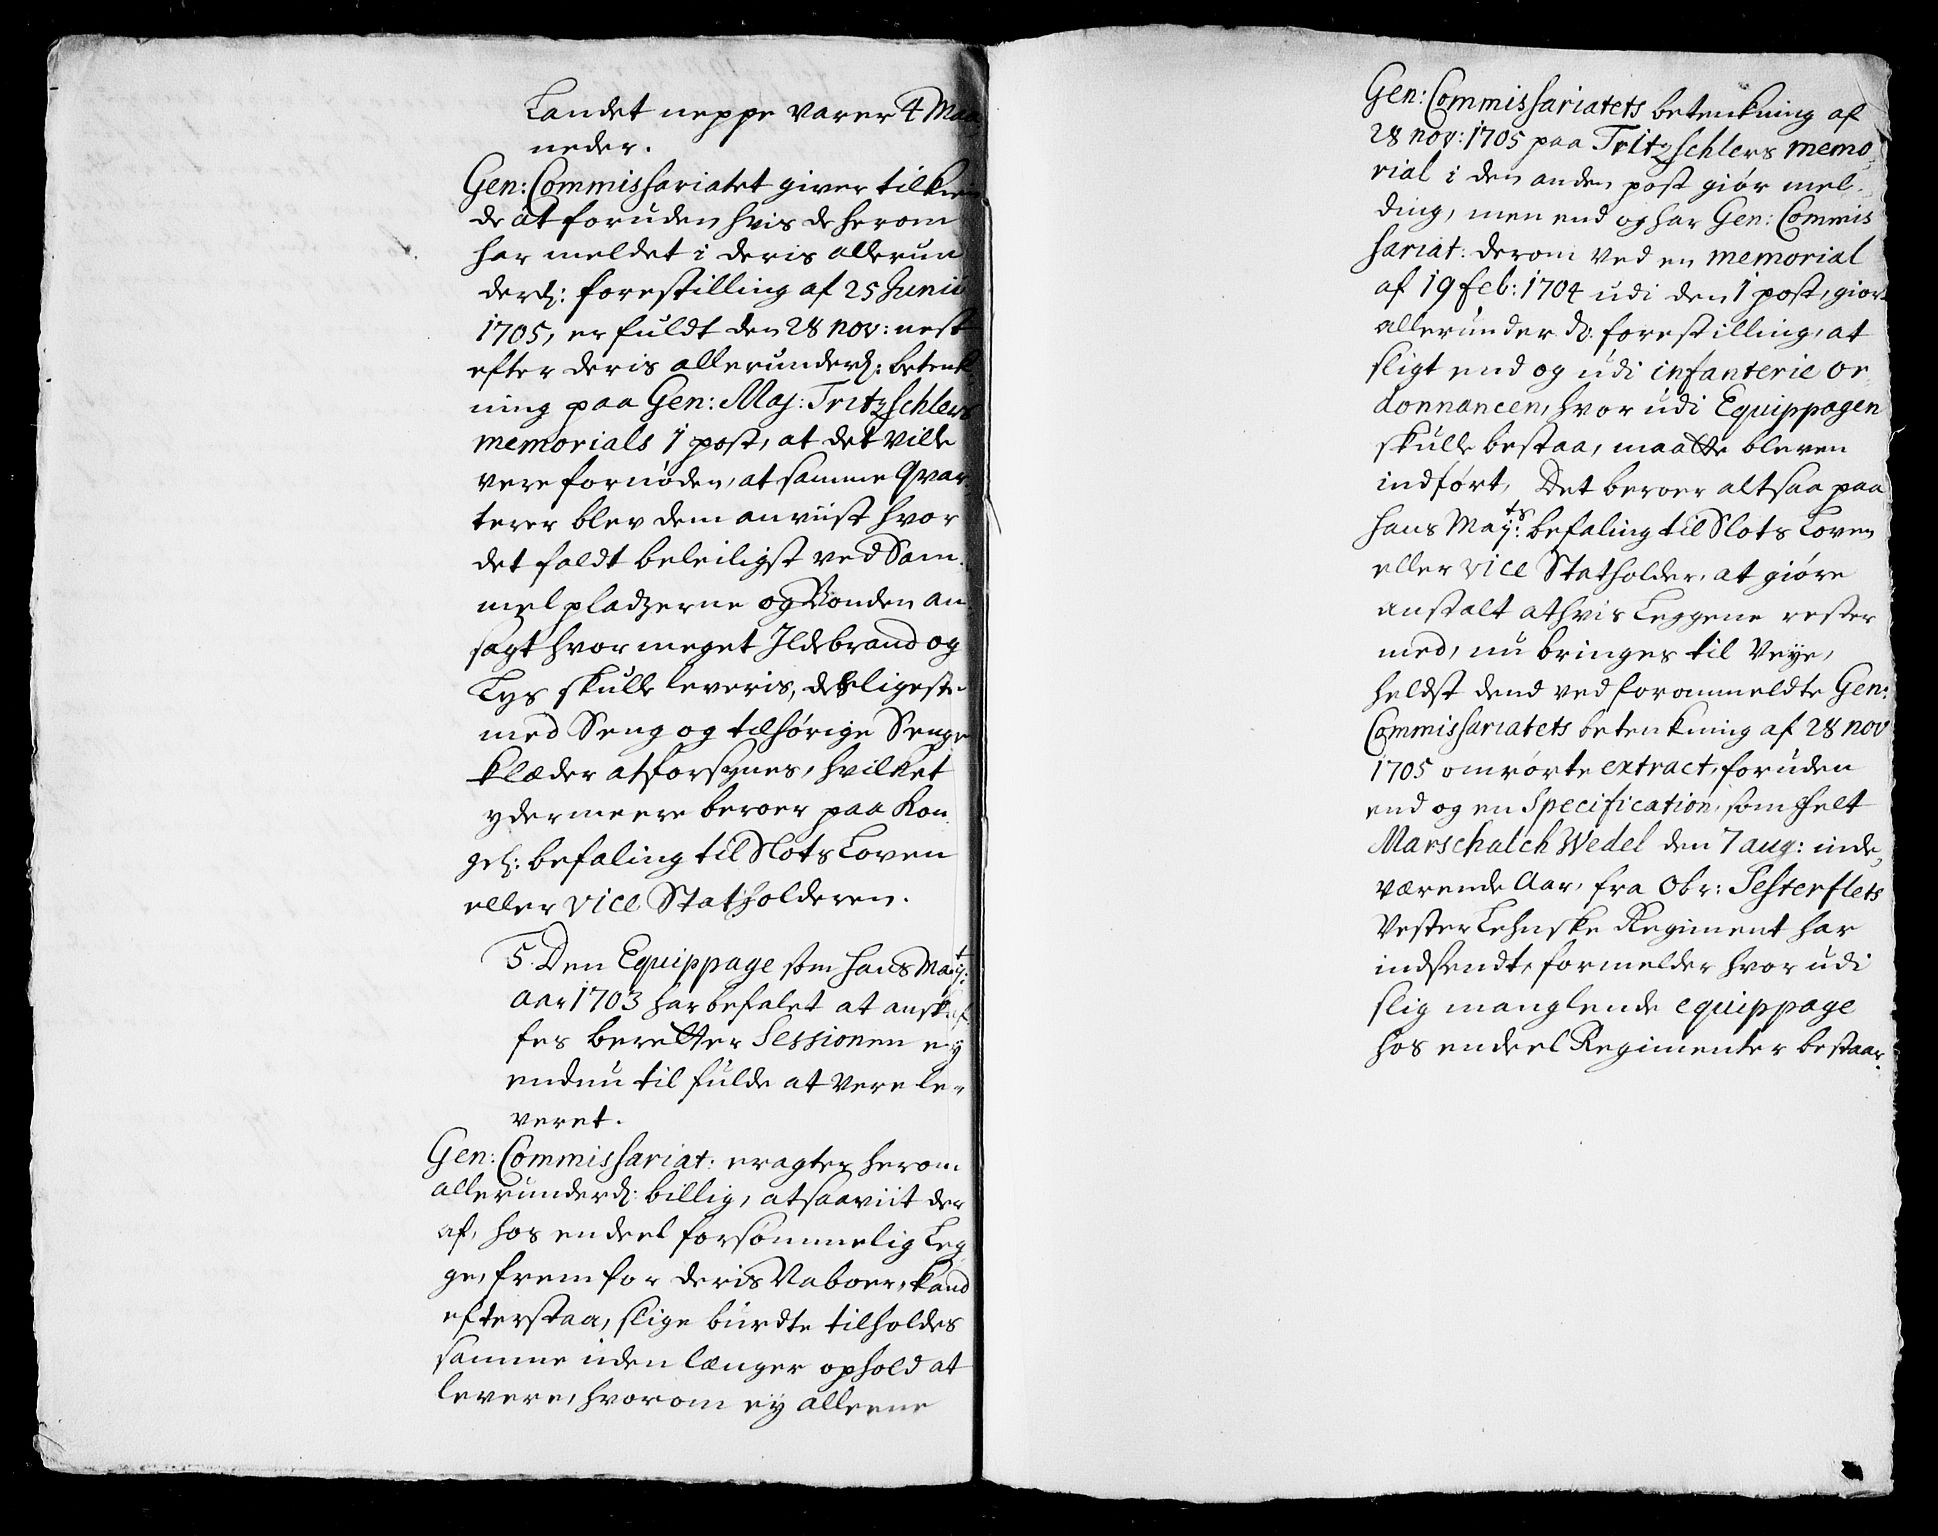 Landet neppe varer 4 Maa
neder.
Gen: Commissariatet giver tilkien
de at foruden hvis de herom
har meldet i deris allerun
derd: forestilling af 25 Junii
1705, er fuldt den 28 nov: nest
efter deris allerunderd: betenk
ning paa Gen: Maj: Tritzschlers
memorials 1 post, at det ville
vere fornøden, at samme Qvar
terer blev dem anviist hvor
det faldt beleiligst ved Sam
melpladzerne og Bonden an
sagt hvor meget Ildebrand og
Lys skulle leveris, desligeste
med Seng og tilhørige Senge
klæder at forsynes, hvilket
ydermeere beroer paa Kon
gel: befaling til SlotsLoven
eller vice Statholderen.
5. Den Equippage som hans May:t
aar 1703 har befalet at anskaf
fes beretter Sessionen ey
endnu til fulde at vere le-
veret.
Gen: Commissariat: eragter herom
allerunderd: billig, at saaviit der
af, hos endeel forsømmelig Leg
ge, fremfor deris Naboer, kand
efterstaa, slige burdte tilholdes
samme uden længer ophold at
levere, hvorom ey alleene
Gen: Commissariatets betenkning af
28 nov: 1705 paa Tritzschlers memo
rial i den anden post giør mel-
ding, men end og har Gen: Commis
sariat: derom ved en memorial
af 19 feb: 1704 udi den 1 post, giort
allerunderd: forestilling, at
sligt end og udi infanterie or
donnancen, hvorudi Equippagen
skulle bestaa, maatte bleven
indført, Det beroer altsaa paa
hans May:ts befaling til SlotsLoven
eller vice Statholder, at giøre
anstalt at hvis Leggene rester
med, nu bringes til Veye,
heldst dend ved forommeldte Gen:
Commissariatets betenkning af 28 nov
1705 omrørte extract, foruden
end og en Specification, som Felt
Marschalch Wedel den 7 aug: inde
værende Aar, fra Obr: Sesterflets
VesterLehnske Regiment har
indsendt, formelder hvorudi
slig manglende equippage
hos endeel Regimenter bestaar.